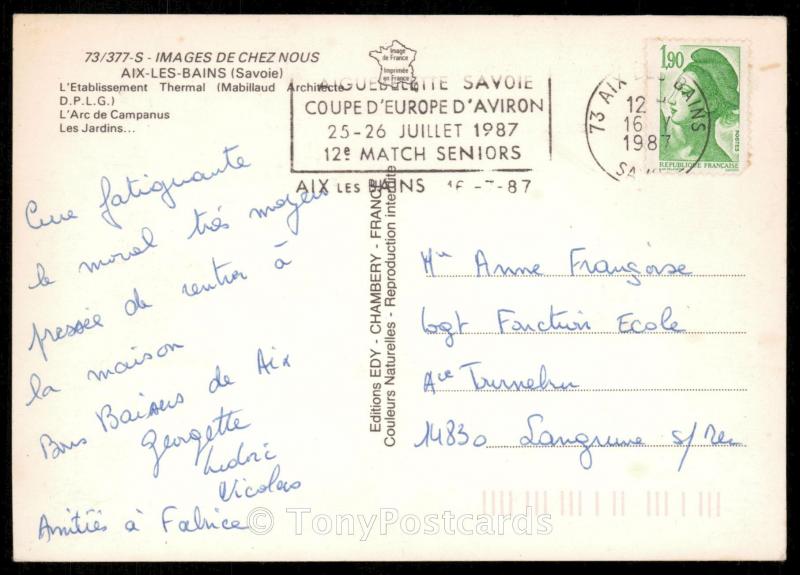 73/377-S - IMAGES DE CHEZ NOUS
AIX-LES-BAINS (Savoie)
L'Etablissement Thermal (Mabillaud Architecte
D.P.L.G.)
L'Arc de Campanus
Les Jardins...
Image
de France
Imprimée
en France
AIGUEBELETTE SAVOIE
COUPE D'EUROPE D'AVIRON
25-26 JUILLET 1987
12e MATCH SENIORS
AIX LES BAINS 16 -7-87
73 AIX LES BAINS
12
16
1987
1,90
POSTES
REPUBLIQUE FRANÇAISE
Cure fatiguante
le moral très moyen
pressée de rentrer à
la maison
Bons Baisers de Aix
Georgette
Nicolas
Amitiés à Fabrice
Editions EDY - CHAMBERY - FRANCE
Couleurs Naturelles - Reproduction interdite
Anne Françoise
Logt Fonction Ecole
Ave
14830 Langrune s/Mer
© TonyPostcards